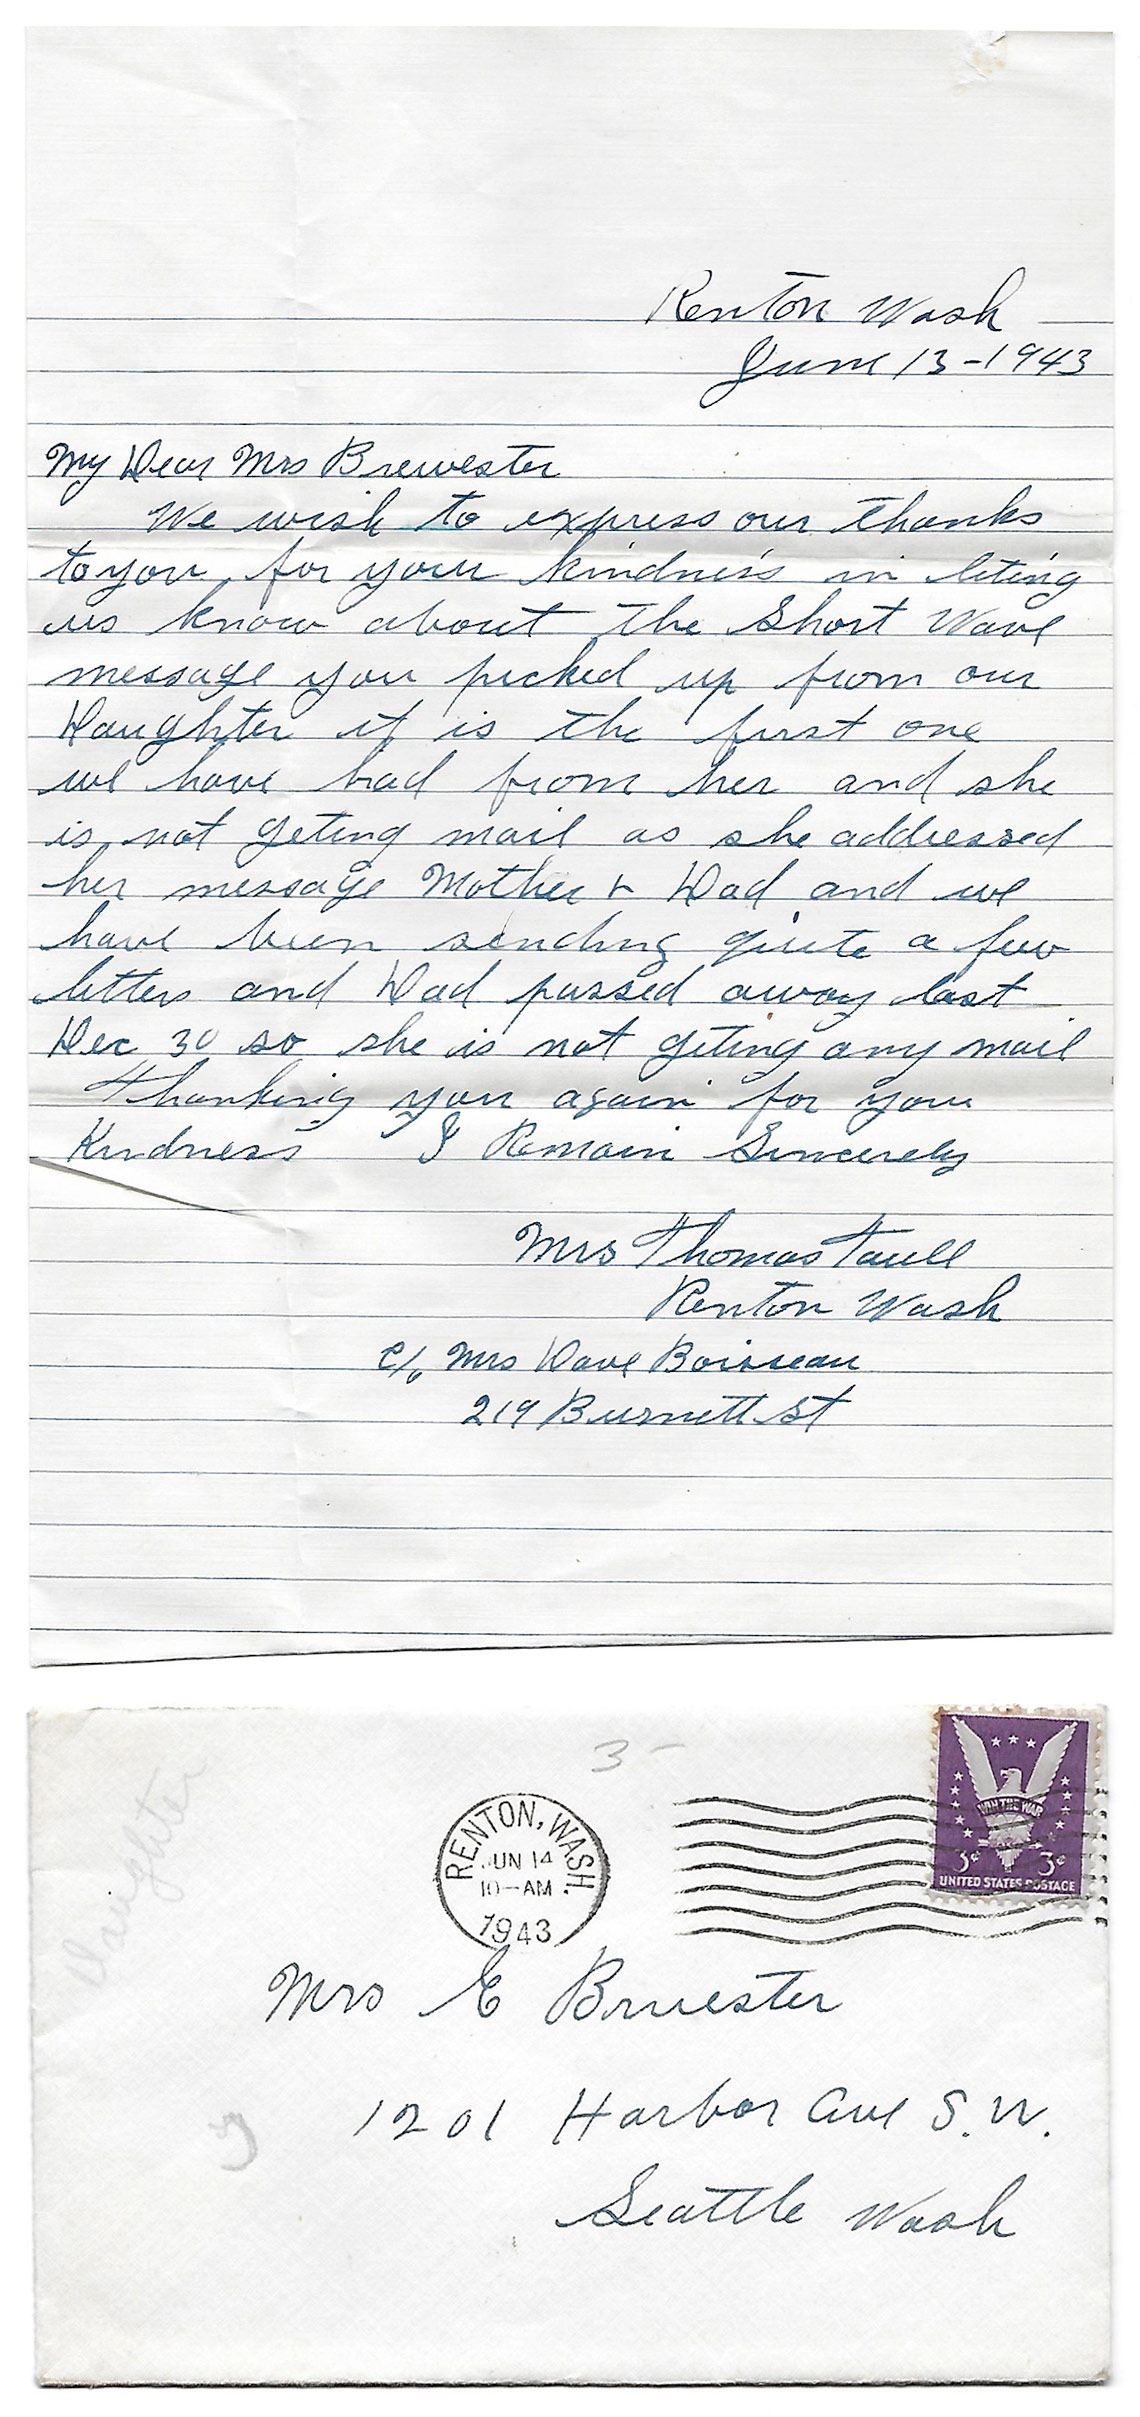 Renton Wash
June 13-1943
My Dear Mrs Brewester
We wish to express our thanks
to you for your kindness in leting
us know about the Short Wave
message you picked up from our
Daughter it is the first one
we have had from her and she
is not geting mail as she addressed
her message Mother & Dad and we
have been sending quite a few
letters and Dad passed away last
Dec 30 so she is not geting any mail
Thanking you again for your
Kindness I Remain Sincerely
Mrs Thomas
Renton Wash
c/o Mrs Dave Boisseau
219 Burnett St
Daughter
3-
RENTON, WASH.
JUN 14
10-AM
1943
WIN THE WAR
3¢ 3¢
UNITED STATES POSTAGE
Mrs E Bruester
1201 Harbor Ave S.W.
Seattle Wash